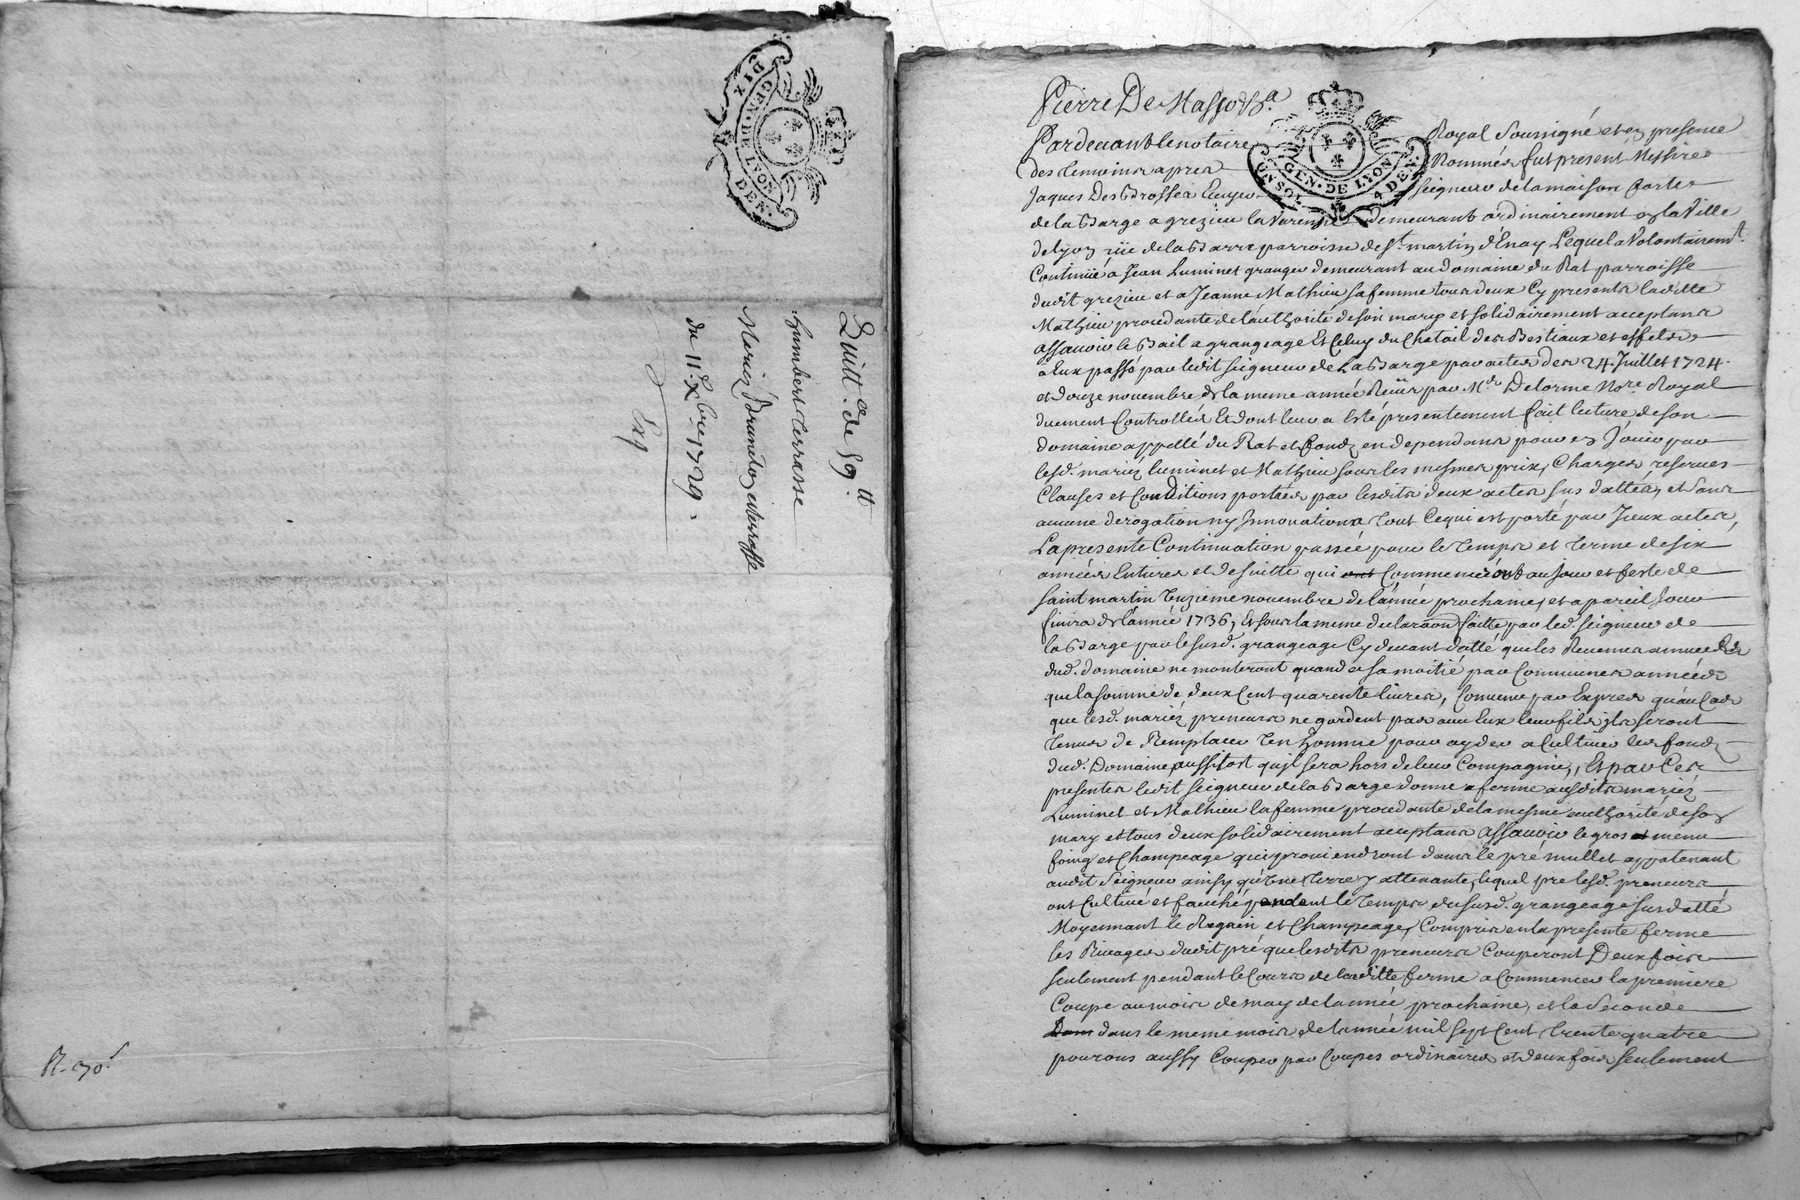 DIX
GEN. DE LYON
DEN.
Quitt.ce de 59.tt
humbert Terrasse
Mariez Brundon
du 11.e Xbre 1729.
Exp
R. 30.s
Pierre De Masso
GEN. DE LYON
UN SOL 4 DEN.
Pardevant le notaire Royal soussigné et en presence
des temoins apres Nommés fut present Messire
Jaques Desbrosses Ecuyer seigneur de la maison forte
de la Barge a grezieu la Varenne demeurant ordinairement en la Ville
de lyon rüe de la Barre parroisse de st. martin d'Enay Lequel a Volontairemt.
Continüé a Jean Luminet granger demeurant au domaine du Rat parroisse
dudit grezieu et a Jeanne Mathieu sa femme tous deux Cy presents laditte
Mathieu procedante de l'authorité de son mary et solidairement acceptans
assavoir le Bail a grangeage Et Celuy du Chatail des Bestiaux et effets
a Eux passé par ledit seigneur de La Barge par actes des 24. Juillet 1724.
et Douze novembre de la meme année Reçüs par Me. Delorme Nore. Royal
duement Controllés Et dont leur a Esté presentement fait lecture de son
domaine appellé du Rat et fondz en dependans pour en Joüir par
lesd. mariez luminet et Mathieu sous les mesmes prix, Charges, reserves
Clauses et Conditions portées par lesdits deux actes sus dattés, et Sans
aucune derogation ny Innovation a tout Cequi est porté par Iceux actes,
La presente Continuation passée pour le temps et terme de six
années Entieres et de suitte qui commenceront au Jour et feste de
saint martin Unzieme novembre de l'année prochaine, et a pareil Jour
finira de l'année 1736, Et sous la meme declaraon faitte par led. seigneur de
la Barge par le susd. grangeage Cy devant datté que les Revenus annuels
dud. domaine ne monteront quand a sa moitié par Communes années
que la somme de deux Cent quarente livres, Convenu par Exprès qu'au Cas
que lesd. mariez preneurs ne gardent pas avec Eux leur fils ils seront
tenus de Remplacer Un homme pour ayder a Cultiver les fondz
dud. Domaine, aussitost qu'il sera hors de leur Compagnie, Et par Ces
presentes ledit seigneur de la Barge donne a ferme ausdits mariez
Luminet et Mathieu la femme procedante de la mesme authorité de son
mary et tous deux solidairement acceptans assavoir le gros et menu
foing et Champeage qui proviendront dans le pré mullet appartenant
audit seigneur ainsy qu'Une terre y attenante, lequel pre lesd. preneurs
ont Cultivé et fauché pendant le temps du susd. grangeage susdatté
Moyennant le Regain et Champeage, Compris en la presente ferme
les Rivages dudit pré que lesdits preneurs Couperont Deux fois
seulement pendant le Cours de laditte ferme a Commencer la premiere
Coupe au mois de may de l'année prochaine, et la seconde
Dans dans le meme mois de l'année mil sept Cent trente quatre
pourons aussy Couper par Coupes ordinaires et deux fois seulement